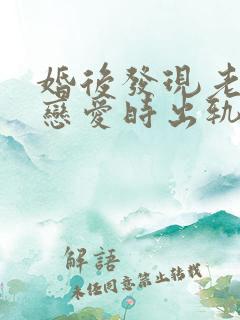 婚後發現老
戀愛時出軌
解語
未經同意禁止轉載